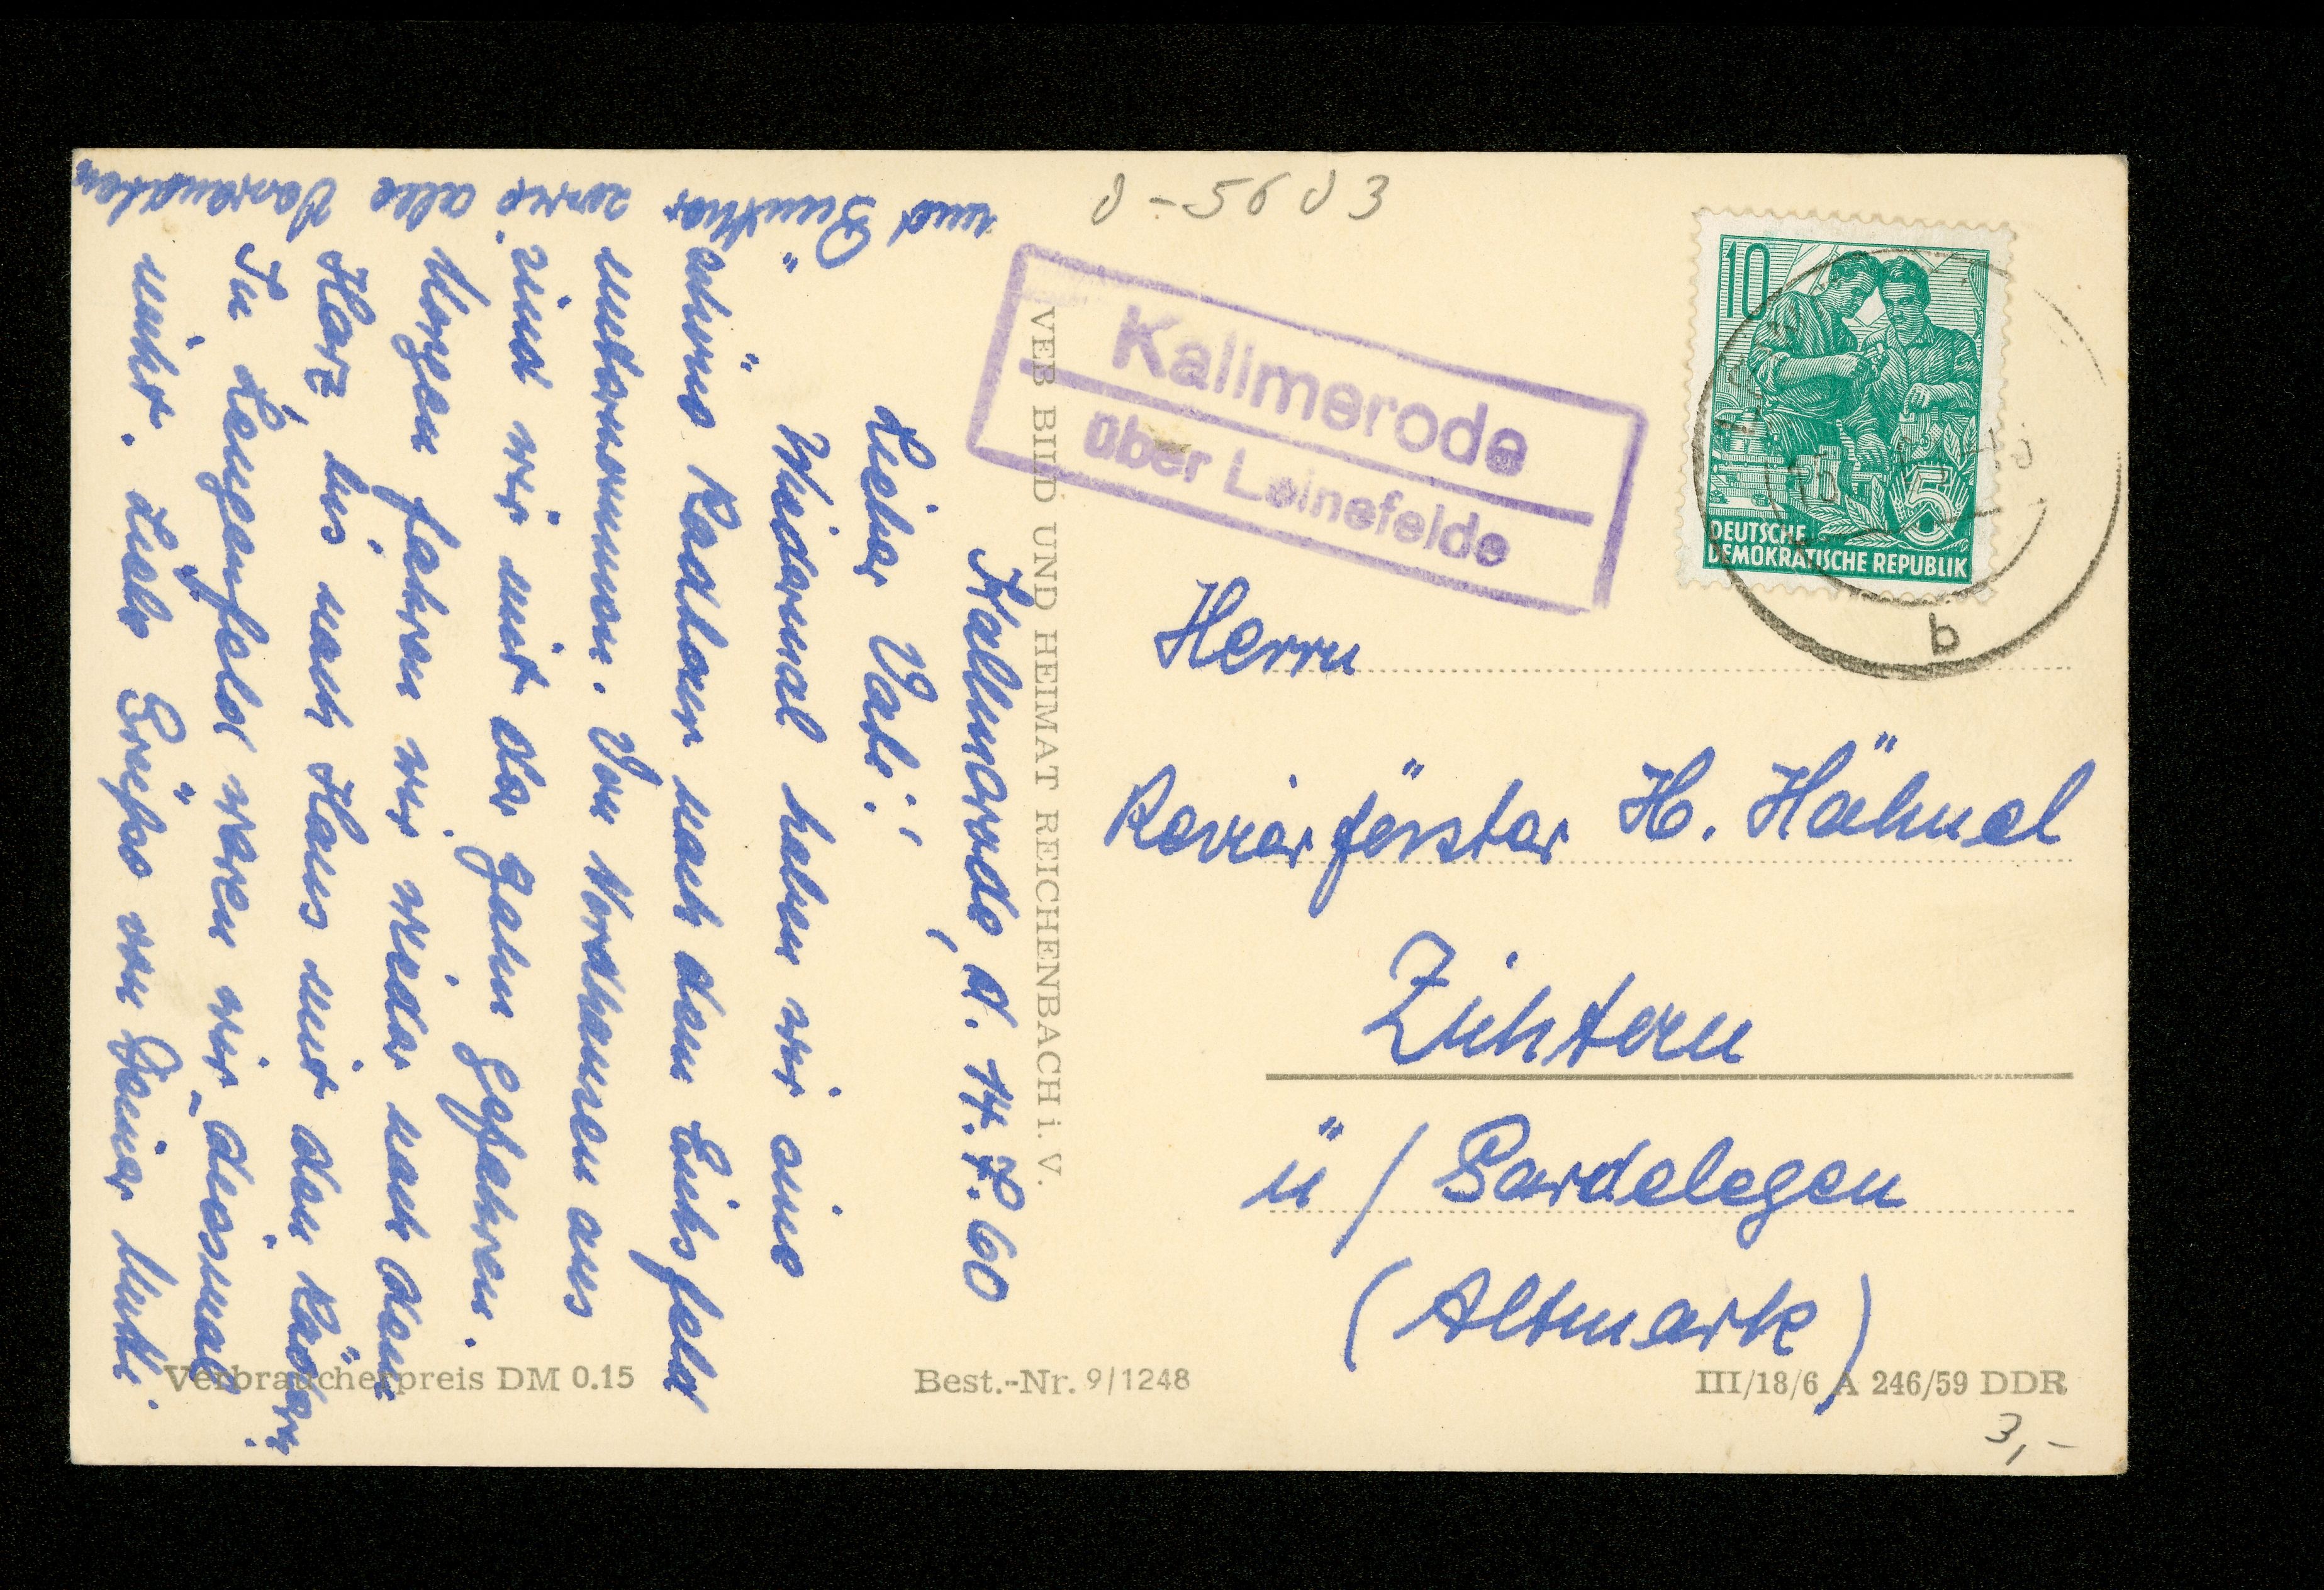 Kallmerode, d. 14.7.60
Lieber Vati!
Wiedermal haben wir eine
schöne Radtour nach dem Eichsfeld
unternommen. Von Nordhausen aus
sind wir mit der Bahn gefahren.
Morgen fahren wir wieder nach dem
Harz bis nach Haus mit den Rädern.
In Lengenfeld waren wir diesmal
nicht. Liebe Grüße von Deiner Mutti.
und Günther
sowie alle Verwandten
VEB BILD UND HEIMAT REICHENBACH i. V.
0-5603
Kallmerode
über Leinefelde
10
5
DEUTSCHE
DEMOKRATISCHE REPUBLIK
b
Herrn
Revierförster H. Hähnel
Zichtau
ü/Gardelegen
(Altmark)
Verbraucherpreis DM 0.15
Best.-Nr. 9/1248
III/18/6 A 246/59 DDR
3,-